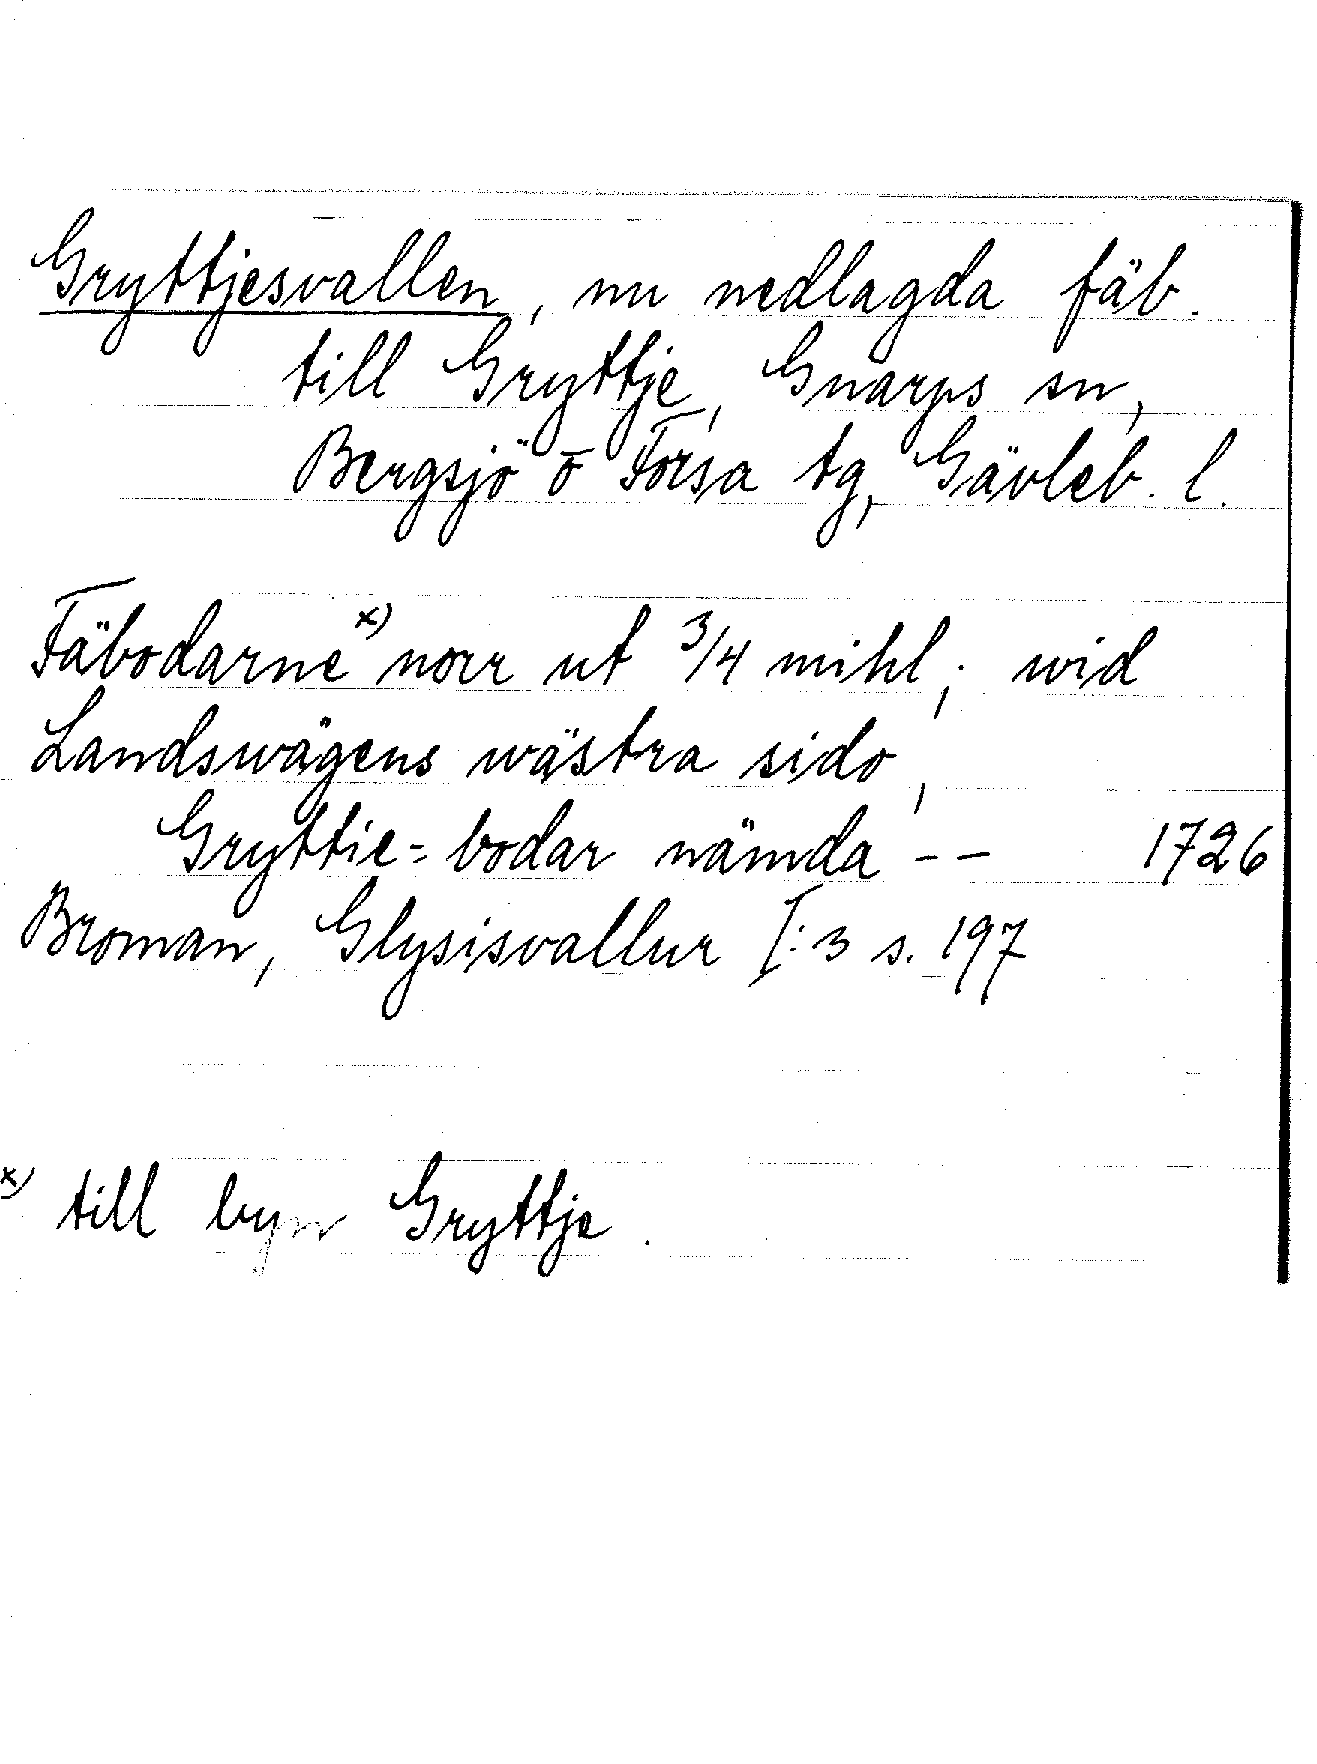 Gryttjesvallen, nu nedlagda fäb.
till Gryttje, Gnarps sn,
Bergsjö o Forsa tg, Gävleb. l.
Fäbodarne x) norr ut 3/4 mihl; wid
Landswägens wästra sido,
Gryttie-bodar nämda -- 1726
Broman, Glysisvallur I:3 s. 197
x) till byn Gryttje.